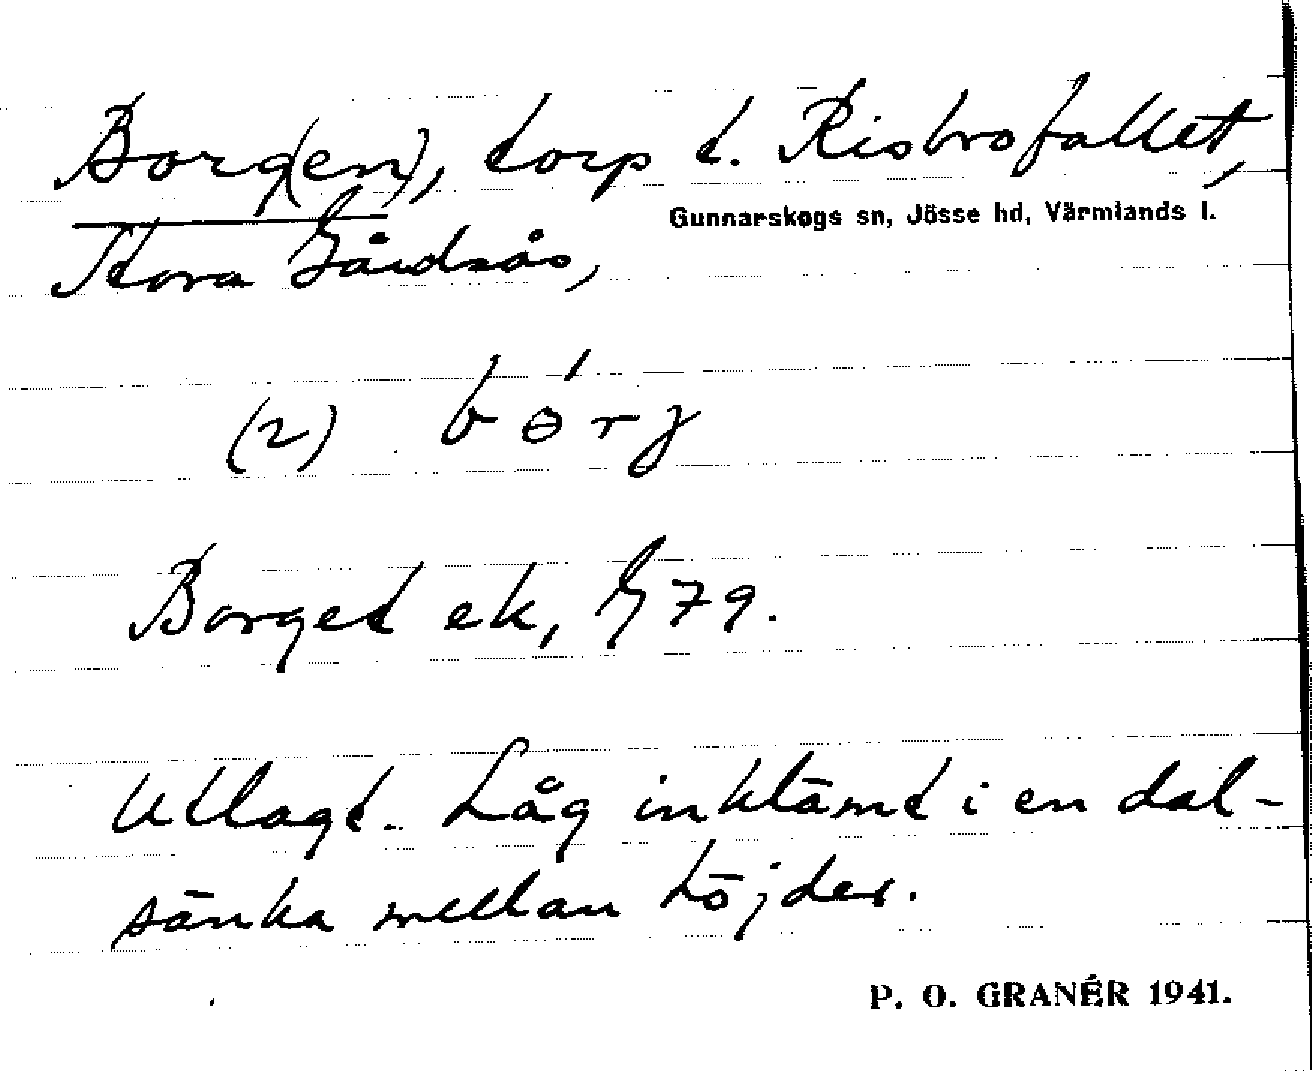 Borg(en), torp t. Risbrofallet,
Gunnarskogs sn, Jösse hd, Värmlands l.
Stora Gårdsås,
(2) bórg
Borget ek, G 79.
Utlagt. Låg inklämt i en dal-
sänka mellan höjder.
P. O. GRANÉR 1941.